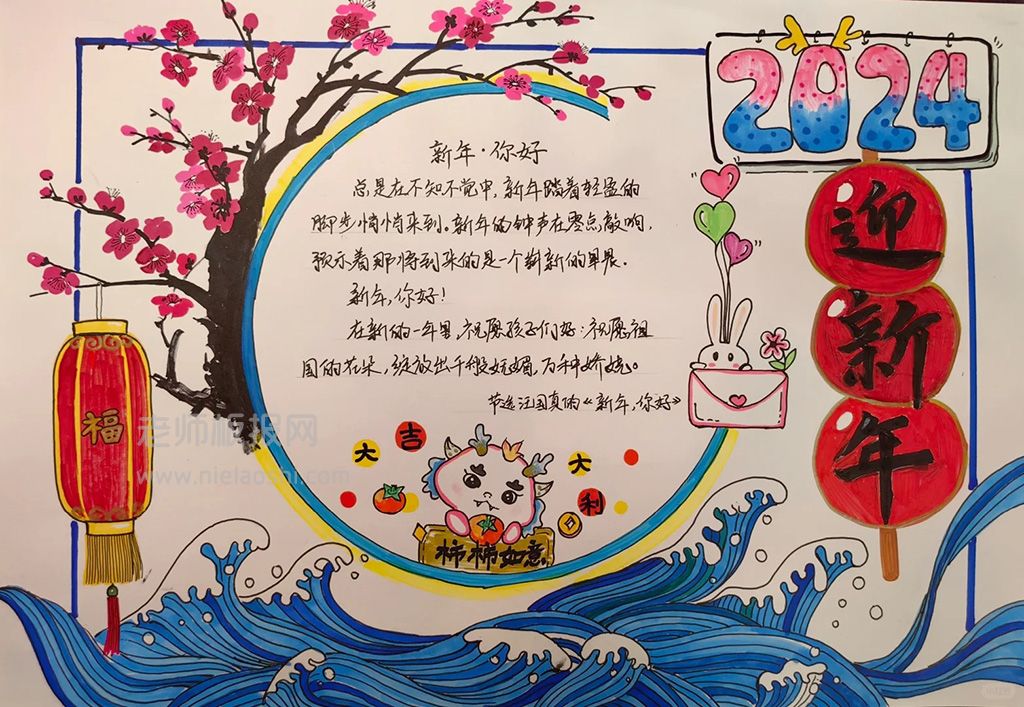 2024
迎
新
年
新年·你好
总是在不知不觉中,新年踏着轻盈的
脚步悄悄来到。新年的钟声在零点敲响,
预示着那将到来的是一个崭新的早晨.
新年,你好!
在新的一年里,祝愿孩子们好:祝愿祖
国的花朵,绽放出千般妩媚,万种娇娆。
节选汪国真的《新年,你好》
福
老师板报网
www.nielaoshi.com
大
吉
大
利
柿柿如意